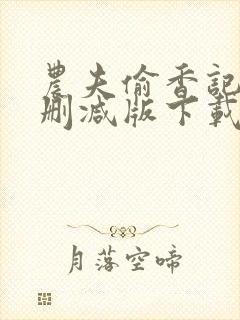 農夫偷香記
刪減版下載
月落空啼